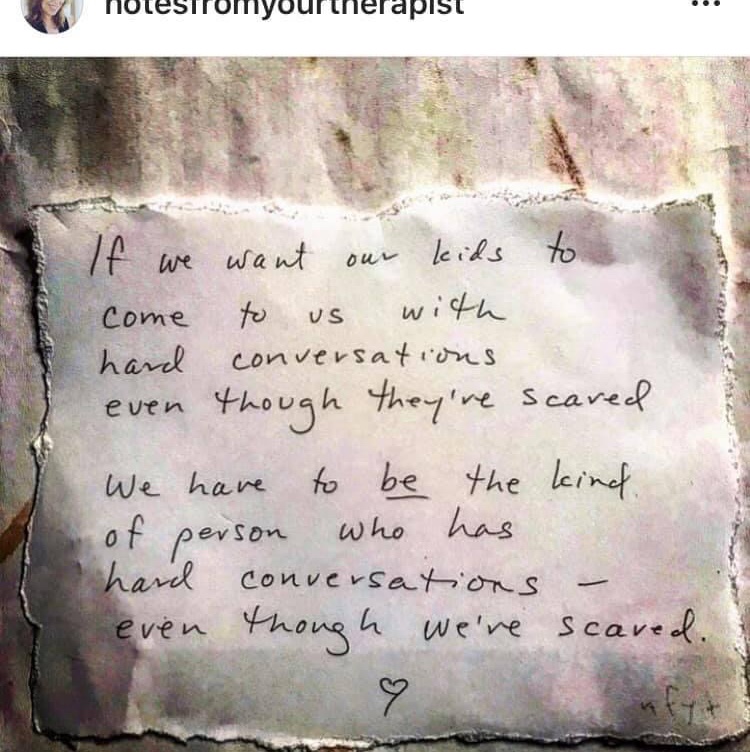 notesfromyourtherapist
If we want our kids to
come to us with
hard conversations
even though they're scared
We have to be the kind
of person who has
hard conversations —
even though we're scared.
nfyt